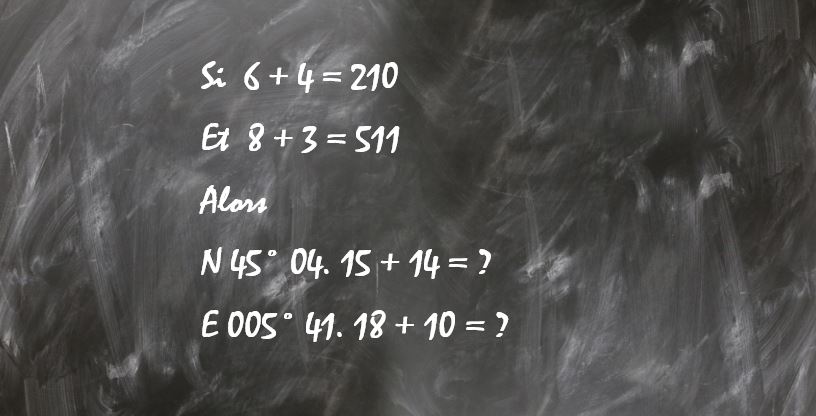 Si 6 + 4 = 210
Et 8 + 3 = 511
Alors
N 45° 04. 15 + 14 = ?
E 005° 41. 18 + 10 = ?